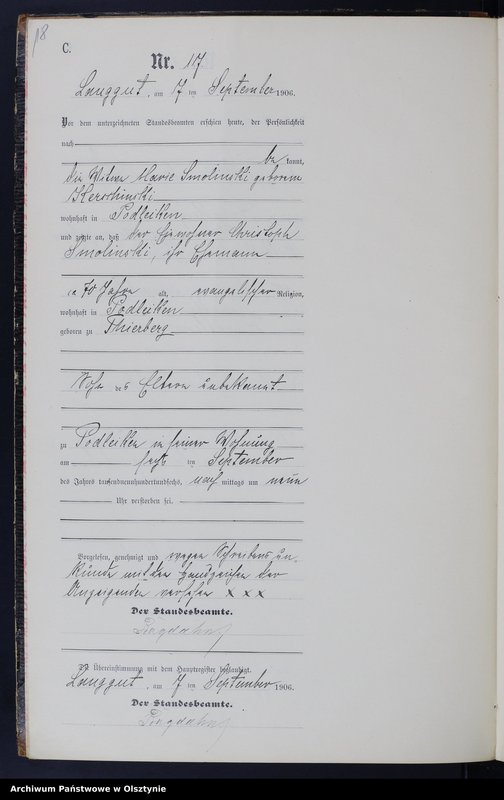 C.
Nr. 17
Langgut, am 7 ten September 1906.
Vor dem unterzeichneten Standesbeamten erschien heute, der Persönlichkeit
nach
be kannt,
die Witwe Marie Smolinski geborene
wohnhaft in Podleiken
und zeigte an, daß der Christoph
Smolinski, ihr Ehemann
70 Jahre alt, evangelischer Religion,
wohnhaft in Podleiken
geboren zu Thierberg
Sohn des Eltern unbekannt
zu Podleiken in seiner Wohnung
am sechs ten September
des Jahres tausendneunhundertundsechs, nach mittags um neun
Uhr verstorben sei.
Vorgelesen, genehmigt und wegen Schreibens un-
kunde mit den Handzeichen der
Anzeigenden versehen x x x
Der Standesbeamte.
Übereinstimmung mit dem Hauptregister beglaubigt.
Langgut, am 7 ten September 1906.
Der Standesbeamte.
Archiwum Państwowe w Olsztynie